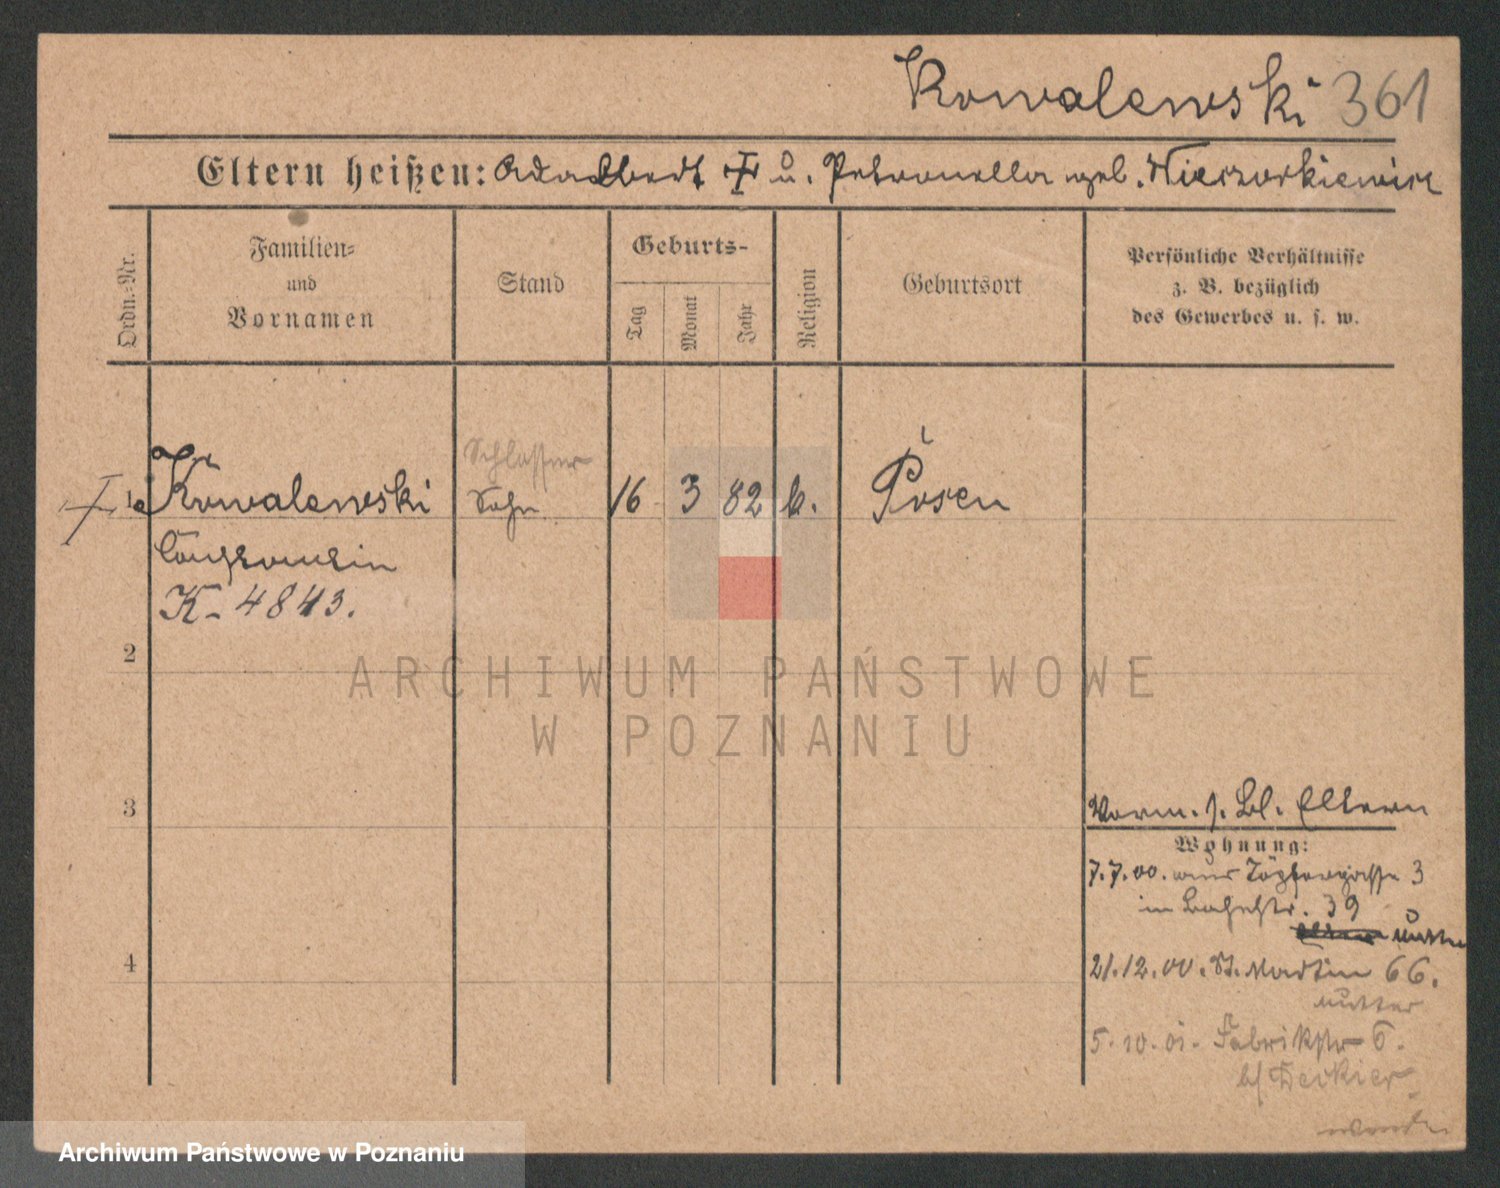 Kowalewski 361
Eltern heißen: Adalbert † u. Petronella geb.
Ordn.-Nr.
Familien-
und
Vornamen
Stand
Geburts-
Tag
Monat
Jahr
Religion
Geburtsort
Persönliche Verhältnisse
z. B. bezüglich
des Gewerbes u. s. w.
Schlosser
1 Kowalewski Sohn 16 3 82 k. Posen
Constantin
K-4843.
2
ARCHIWUM PAŃSTWOWE
W POZNANIU
3
Vorm. s. Bl. Eltern
Wohnung:
7.7.00. aus Töpfergasse 3
in Bachstr. 39
Mutter
4
21.12.00. St. Martin 66.
Mutter
5.10.01. Fabrikstr 6.
b/
Archiwum Państwowe w Poznaniu